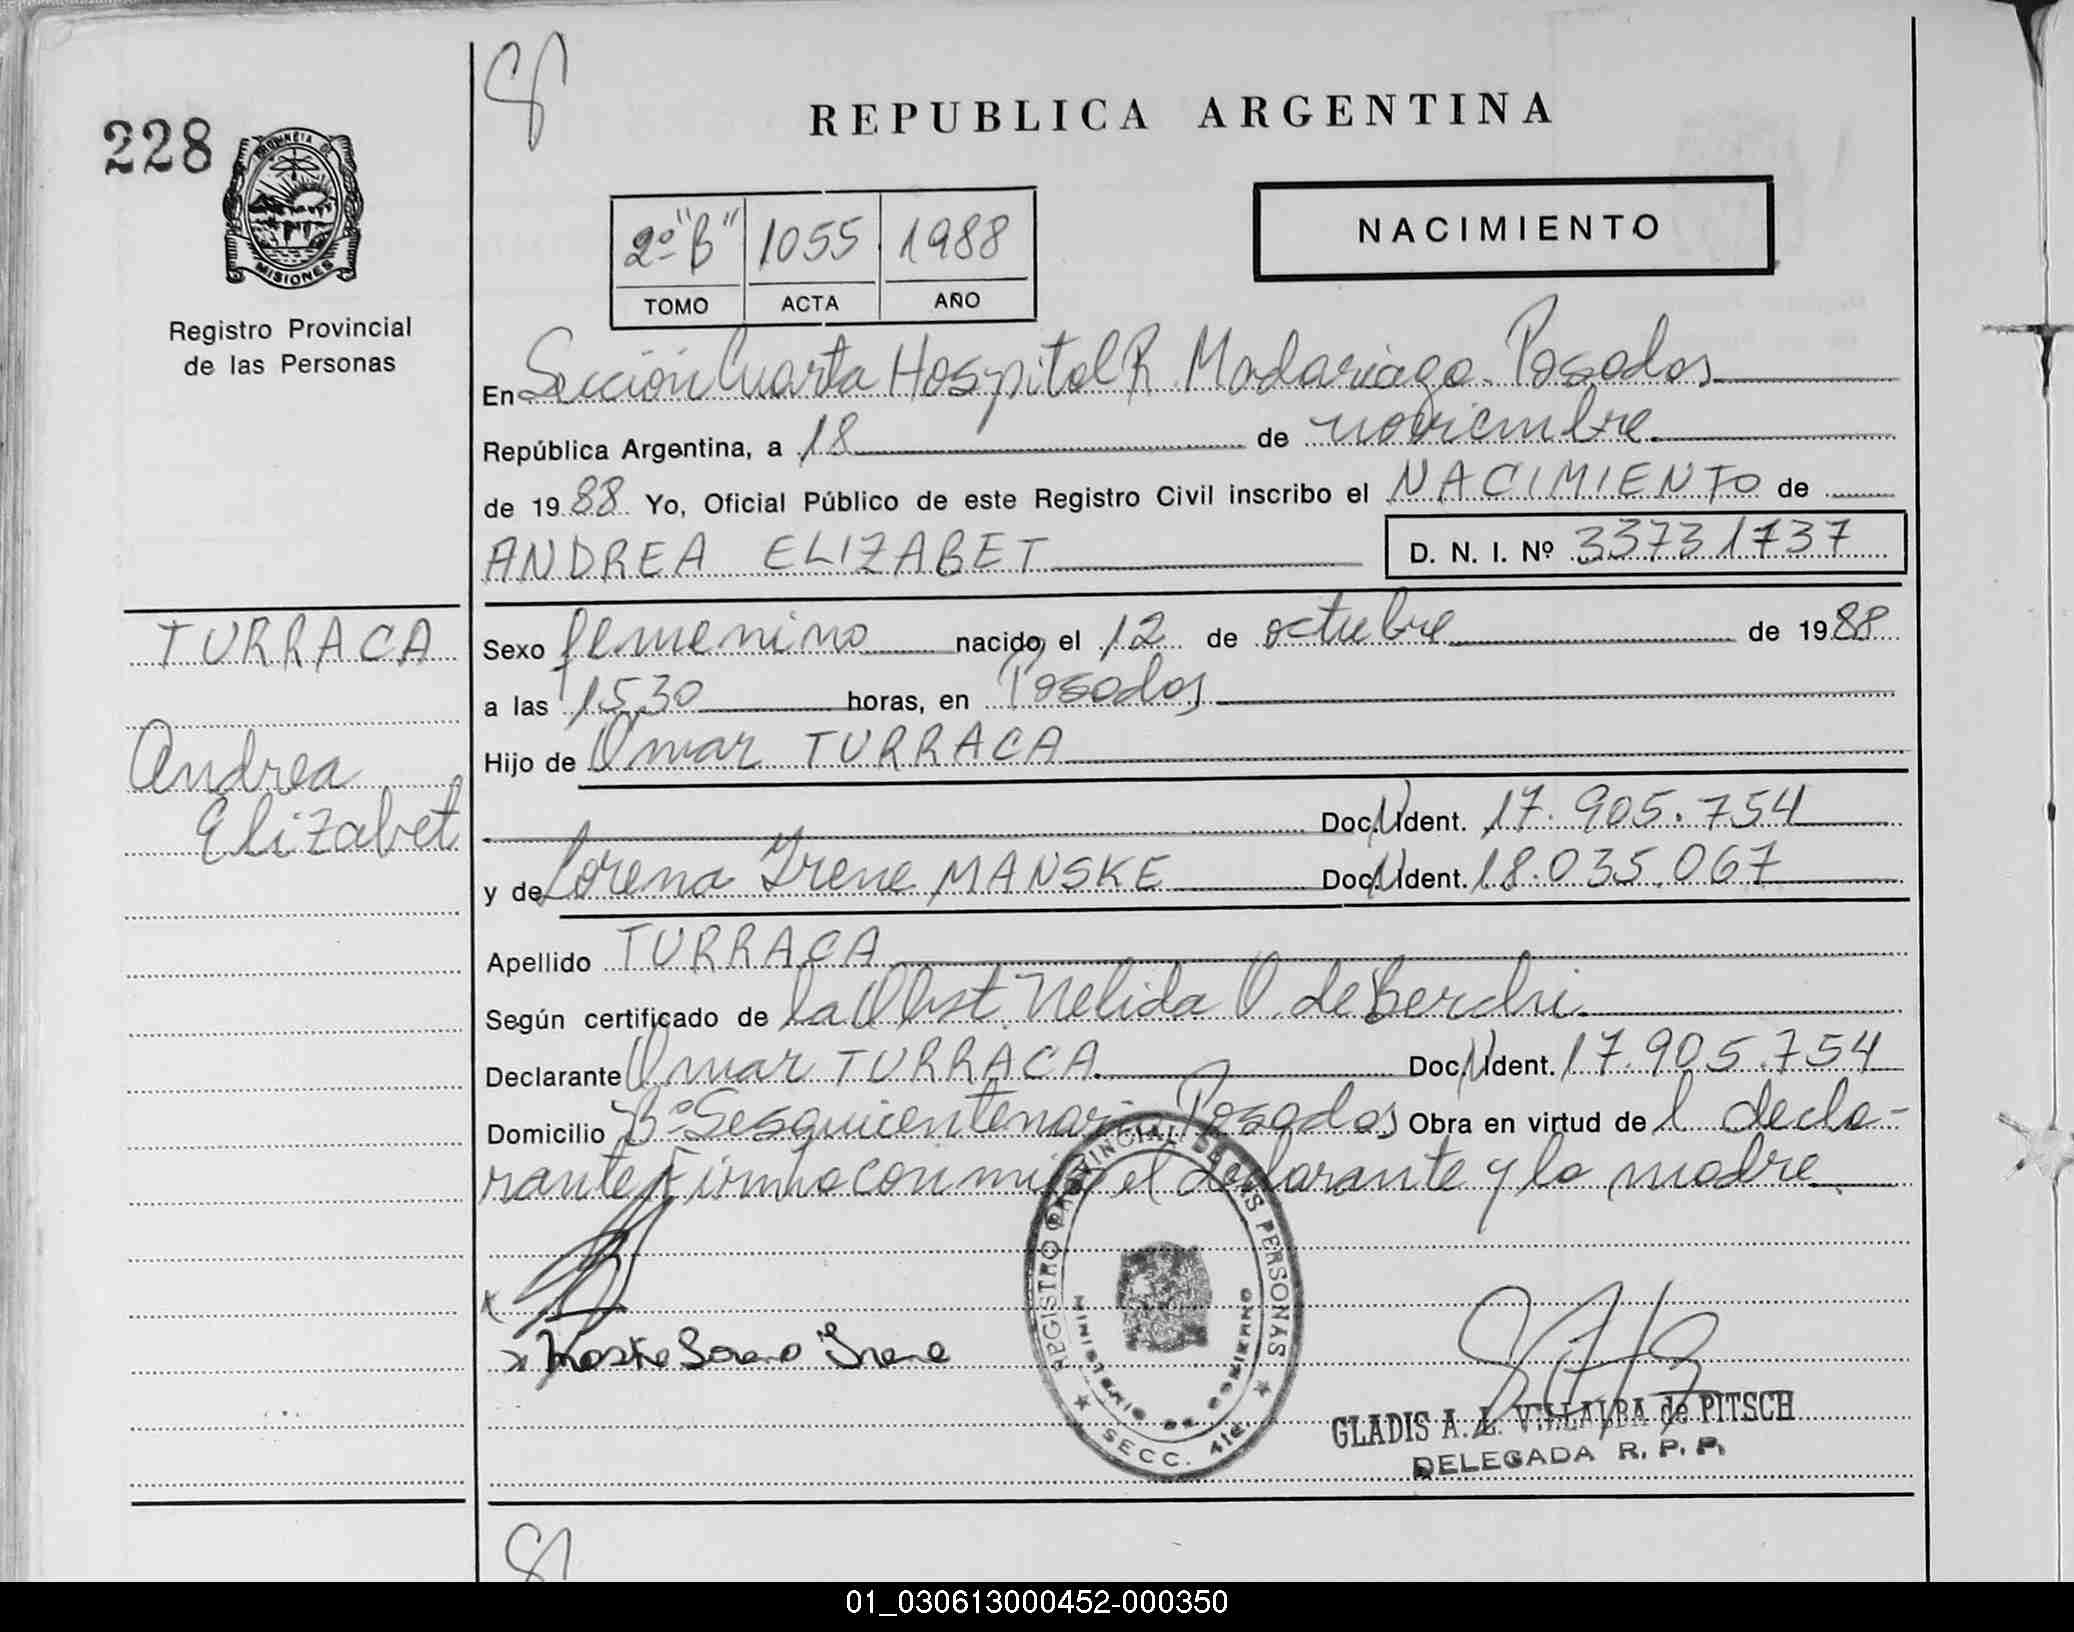 228
PROVINCIA DE
MISIONES
Registro Provincial
de las Personas
REPUBLICA ARGENTINA
2º "B" 1055 1988
TOMO ACTA AÑO
NACIMIENTO
En Sección Cuarta Hospital R. Madariaga - Posadas
República Argentina, a 18 de noviembre
de 1988 Yo, Oficial Público de este Registro Civil inscribo el NACIMIENTO de
ANDREA ELIZABET D. N. I. Nº 33731737
TURRACA
Andrea
Elizabet
Sexo femenino nacido el 12 de octubre de 1988
a las 15,30 horas, en Posadas
Hijo de Omar TURRACA
Doc. N Ident. 17.905.754
y de Lorena Irene MANSKE Doc. N Ident. 18.035.067
Apellido TURRACA
Según certificado de la Obst. Nelida O. de Berchi
Declarante Omar TURRACA Doc. N Ident. 17.905.754
Domicilio Bº Sesquicentenario Posadas Obra en virtud de l decla-
rante Firma conmigo el declarante y la madre
x
x Manske Lorena Irene
REGISTRO PROVINCIAL DE LAS PERSONAS
MINISTERIO DE GOBIERNO
SECC. 4ta
GLADIS A. L. VILLALBA de PITSCH
DELEGADA R. P. P.
01_030613000452-000350